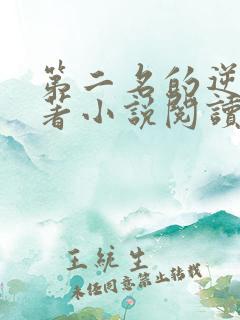 第二名的逆
著小説閱讀
王統生
未经同意禁止转载